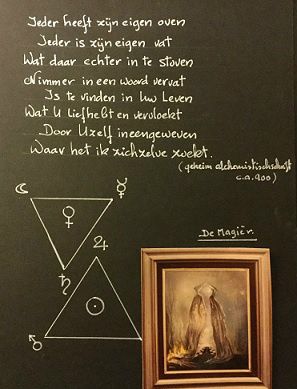 Ieder heeft zijn eigen oven
Ieder is zijn eigen vat
Wat daar echter in te stoven
Nimmer in een woord vervat
Is te vinden in Uw Leven
Wat U liefhebt en vervloekt
Door Uzelf ineengeweven
Waar het ik zichzelve zoekt.
(geheim alchemistischschrift
c.a. 900)
☾ ☿
♀
♃
♄
☉
♂
De Magiër.